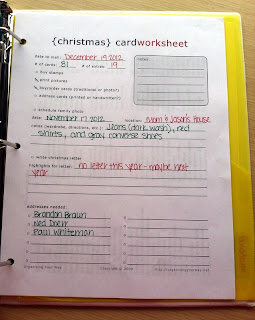 {christmas} cardworksheet
date to mail: December 19 2012
# of cards: 81 # of extras: 19
notes:
buy stamps
print pictures
buy/order cards (traditional or photo?)
address cards (printed or handwritten?)
schedule family photo
date: November 17 2012 location: Mom & Jason's House
notes (wardrobe, directions, etc.): Jeans (dark wash), red
shirts, and gray converse shoes
write christmas letter
highlights for letter: no letter this year - maybe next
year
addresses needed:
Brandon Braun
Ned Doerr
Paul Whiteman
Organizing Your Way